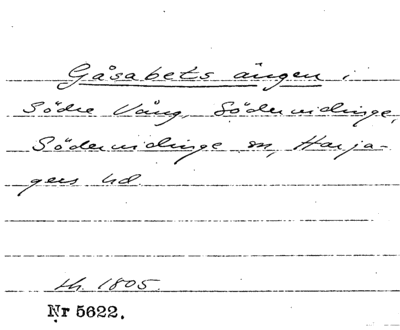 Gåsabets ängen i
Södre Vång, Södervidinge,
Södervidinge sn, Harja-
gers hd
lh. 1805.
Nr 5622.